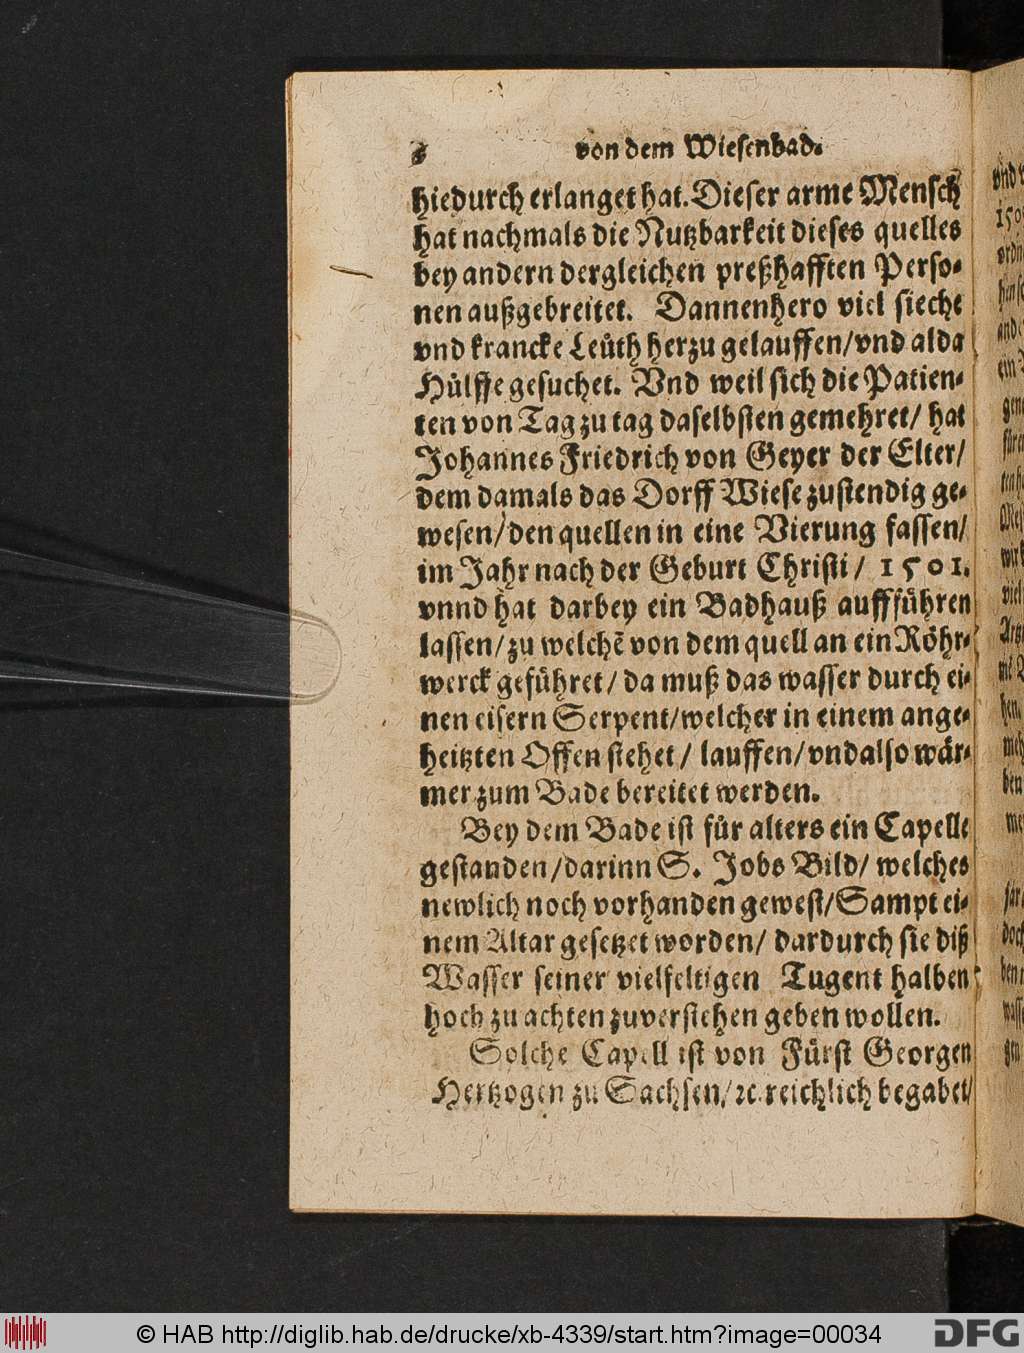 8 von dem Wiesenbad.
hiedurch erlanget hat. Dieser arme Mensch
hat nachmals die Nutzbarkeit dieses quelles
bey andern dergleichen preßhafften Perso-
nen außgebreitet. Dannenhero viel sieche
vnd krancke Leüth herzu gelauffen/vnd alda
Hülffe gesuchet. Vnd weil sich die Patien-
ten von Tag zu tag daselbsten gemehret/ hat
Johannes Friedrich von Geyer der Elter/
dem damals das Dorff Wiese zustendig ge-
wesen/den quellen in eine Vierung fassen/
im Jahr nach der Geburt Christi/ 1501.
vnnd hat darbey ein Badhauß auffführen
lassen/zu welchē von dem quell an ein Röhr-
werck geführet/da muß das wasser durch ei-
nen eisern Serpent/welcher in einem ange-
heitzten Offen stehet/ lauffen/vnd also wär-
mer zum Bade bereitet werden.
Bey dem Bade ist für alters ein Capelle
gestanden/darinn S. Jobs Bild/ welches
newlich noch vorhanden gewest/Sampt ei-
nem Altar gesetzet worden/ dardurch sie diß
Wasser seiner vielfeltigen Tugent halben
hoch zu achten zuverstehen geben wollen.
Solche Capell ist von Fürst Georgen
Hertzogen zu Sachsen/ ꝛc. reichlich begabet/
© HAB http://diglib.hab.de/drucke/xb-4339/start.htm?image=00034
DFG